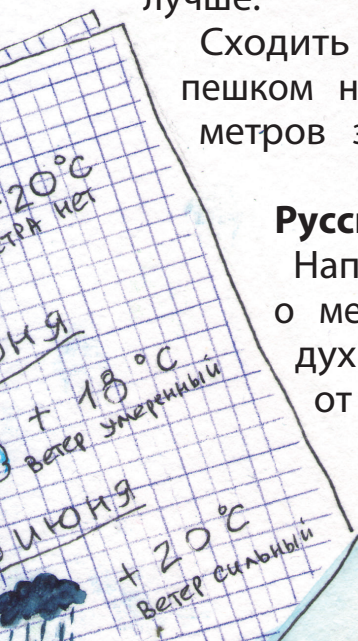 лучше.
Сходить
пешком н
метров з
Русс
Нап
о ме
дух
от
20°C
ЕТРА НЕТ
ЮНЯ
+ 18°C
ВЕТЕР УМЕРЕННЫЙ
ИЮНЯ
+ 20°C
ВЕТЕР СИЛЬНЫЙ